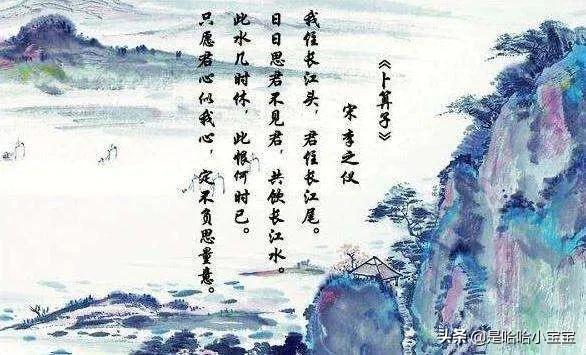 《卜算子》
宋李之仪
我住长江头，君住长江尾。
日日思君不见君，共饮长江水。
此水几时休，此恨何时已。
只愿君心似我心，定不负思量意。
头条 @是哈哈小宝宝